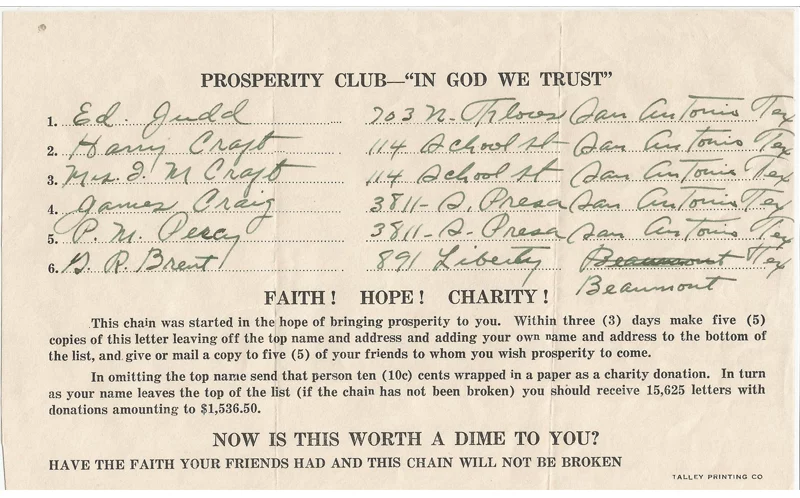 PROSPERITY CLUB—"IN GOD WE TRUST"
1. Ed. Judd 703 N- Flores San Antonio Tex
2. Harry Craft 114 School st San Antonio Tex
3. Mrs. J. M Craft 114 School st San Antonio Tex
4. James Craig 3811- S. Presa San Antonio Tex
5. P. M. Percy 3811- S- Presa San Antonio Tex
6. R. Brent 891 Liberty Beaumont Tex
Beaumont
FAITH! HOPE! CHARITY!
This chain was started in the hope of bringing prosperity to you. Within three (3) days make five (5)
copies of this letter leaving off the top name and address and adding your own name and address to the bottom of
the list, and give or mail a copy to five (5) of your friends to whom you wish prosperity to come.
In omitting the top name send that person ten (10c) cents wrapped in a paper as a charity donation. In turn
as your name leaves the top of the list (if the chain has not been broken) you should receive 15,625 letters with
donations amounting to $1,536.50.
NOW IS THIS WORTH A DIME TO YOU?
HAVE THE FAITH YOUR FRIENDS HAD AND THIS CHAIN WILL NOT BE BROKEN
TALLEY PRINTING CO